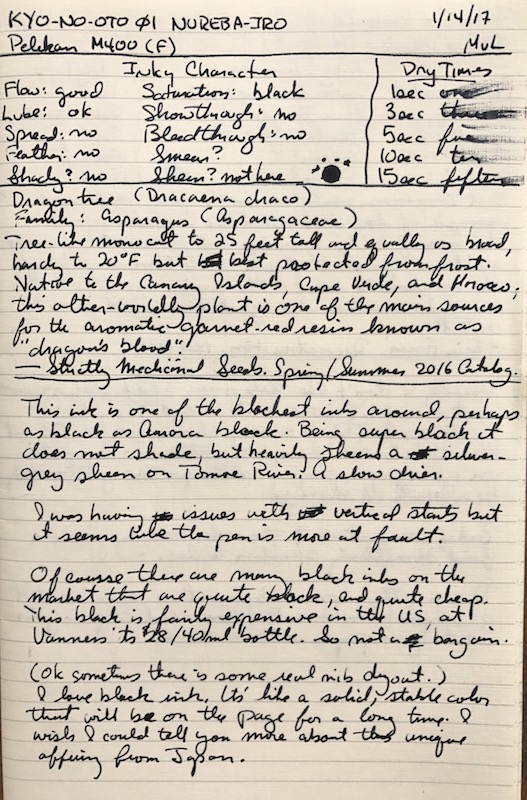 KYO-NO-OTO Ø1 NUREBA-IRO 1/14/17
Pelikan M400 (F) MvL
Inky Character Dry Times
Flow: good Saturation: black 1sec one
Lube: ok Showthrough: no 3sec three
Spread: no Bleedthrough: no 5sec five
Feather: no Smear? 10sec ten
Shady? no Sheen? not here 15sec fifteen
Dragon tree (Dracaena draco)
Family: Asparagus (Asparagaceae)
Tree-like monocot to 25 feet tall and equally as broad,
hardy to 20°F but best protected from frost.
Native to the Canary Islands, Cape Verde, and Morocco,
this other-worldly plant is one of the main sources
for the aromatic garnet-red resin known as
"dragon's blood".
— Strictly Medicinal Seeds. Spring/Summer 2016 Catalog.
This ink is one of the blackest inks around, perhaps
as black as Aurora black. Being super black it
does not shade, but heavily sheens a silver-
grey sheen on Tomoe River. A slow drier.
I was having issues with vertical starts but
it seems like the pen is more at fault.
Of course there are many black inks on the
market that are quite black, and quite cheap.
This black is fairly expensive in the US, at
Vanness its $28/40ml bottle. So not a bargain.
(Ok sometimes there is some real nib dryout.)
I love black ink. Its' like a solid, stable color
that will be on the page for a long time. I
wish I could tell you more about this unique
offering from Japan.